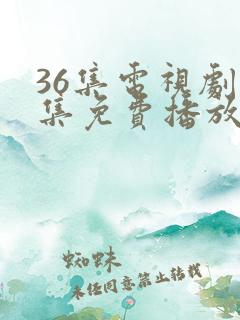 36集电視劇
集免費播放
蜘蛛
未经同意禁止转载